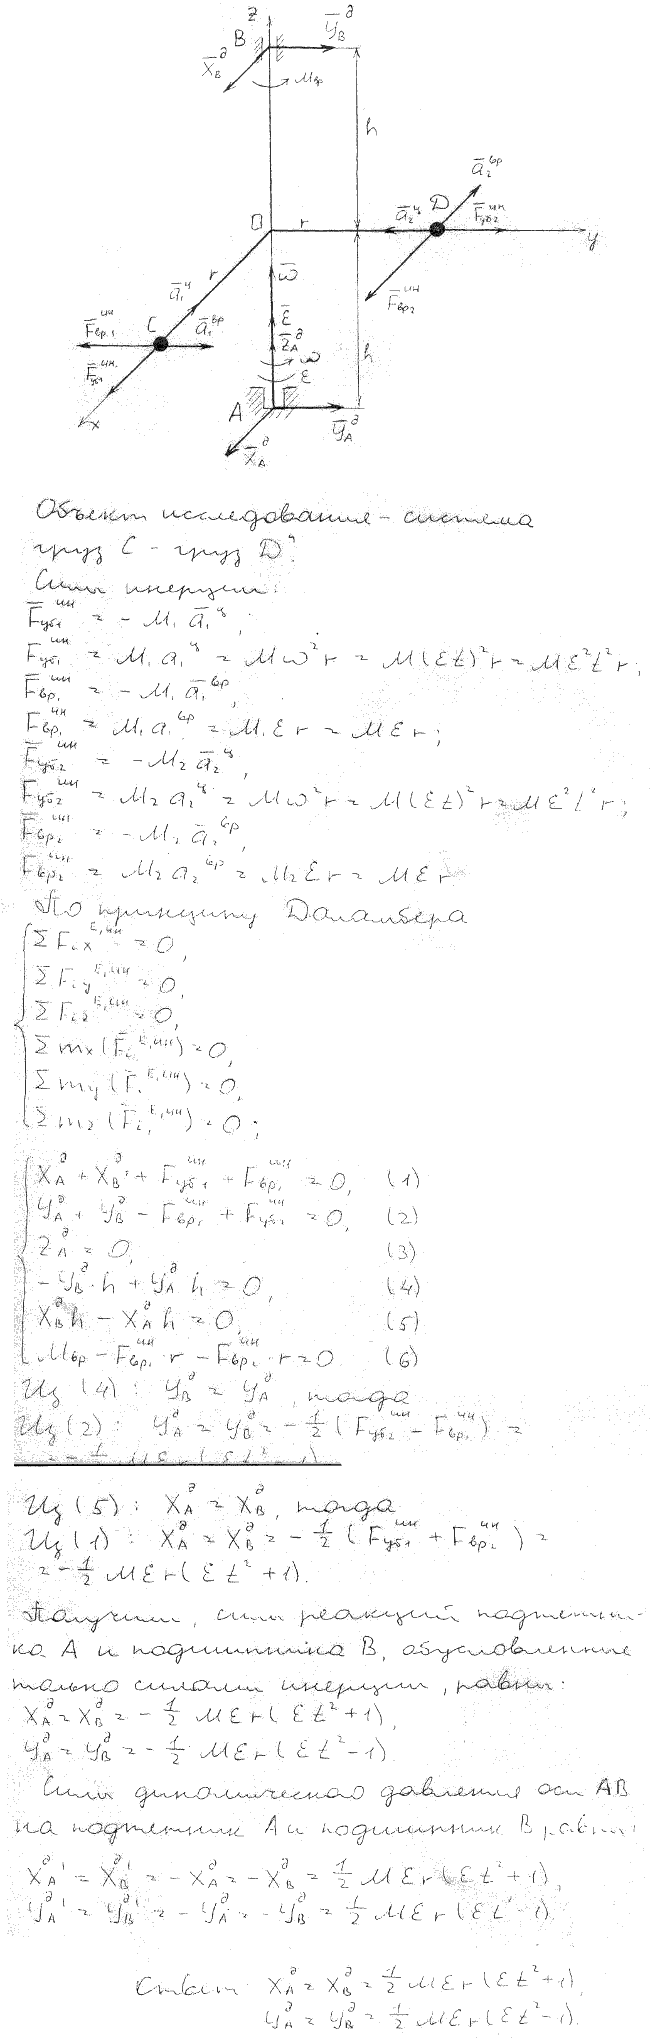 z
B
Y̅_B^д
X̅_B^д
M_вр
h
a̅_2^вр
O
r
a̅_2^ц
D
F̅_уб2^ин
y
ω̅
F̅_вр2^ин
r
a̅_1^ц
ε̅
F̅_вр.1^ин
C
a̅_1^вр
Z̅_A^д
F̅_уб1^ин
ω
ε
h
x
A
Y̅_A^д
X̅_A^д
Объект исследования – система
груз C – груз D.
Силы инерции:
F̅_уб1^ин = – M_1 a̅_1^ц,
F_уб1^ин = M_1 a_1^ц = Mω²r = M(εt)²r = Mε²t²r;
F̅_вр1^ин = – M_1 a̅_1^вр,
F_вр1^ин = M_1 a_1^вр = M_1 ε r = Mεr;
F̅_уб2^ин = – M_2 a̅_2^ц,
F_уб2^ин = M_2 a_2^ц = Mω²r = M(εt)²r = Mε²t²r;
F̅_вр2^ин = – M_2 a̅_2^вр,
F_вр2^ин = M_2 a_2^вр = M_2 ε r = Mεr
По принципу Даламбера
ΣF_ix^E,ин = 0,
ΣF_iy^E,ин = 0,
ΣF_iz^E,ин = 0,
Σm_x(F̅_i^E,ин) = 0,
Σm_y(F̅_i^E,ин) = 0,
Σm_z(F̅_i^E,ин) = 0;
X_A^д + X_B^д + F_уб1^ин + F_вр2^ин = 0, (1)
Y_A^д + Y_B^д – F_вр1^ин + F_уб2^ин = 0, (2)
Z_A^д = 0, (3)
– Y_B^д · h + Y_A^д h = 0, (4)
X_B^д h – X_A^д h = 0, (5)
M_вр – F_вр1^ин · r – F_вр2^ин · r = 0 (6)
Из (4): Y_B^д = Y_A^д, тогда
Из (2): Y_A^д = Y_B^д = – 1/2 (F_уб2^ин – F_вр1^ин) =
= – 1/2 Mεr(εt² – 1)
Из (5): X_A^д = X_B^д, тогда
Из (1): X_A^д = X_B^д = – 1/2 (F_уб1^ин + F_вр2^ин) =
= – 1/2 Mεr(εt² + 1).
Получим, силы реакций подпятни-
ка A и подшипника B, обусловленные
только силами инерции, равны:
X_A^д = X_B^д = – 1/2 Mεr(εt² + 1),
Y_A^д = Y_B^д = – 1/2 Mεr(εt² – 1).
Силы динамического давления оси AB
на подпятник A и подшипник B равны:
X_A^д' = X_B^д' = – X_A^д = – X_B^д = 1/2 Mεr(εt² + 1),
Y_A^д' = Y_B^д' = – Y_A^д = – Y_B^д = 1/2 Mεr(εt² – 1)
Ответ: X_A^д = X_B^д = 1/2 Mεr(εt² + 1),
Y_A^д = Y_B^д = 1/2 Mεr(εt² – 1).